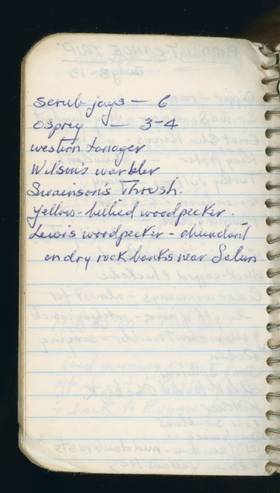 scrub jays — 6
Osprey — 3-4
western tanager
Wilson's warbler
Swainson's Thrush.
Yellow-billied woodpecker.
Lewis woodpecker - abundant
on dry rock banks near Selun